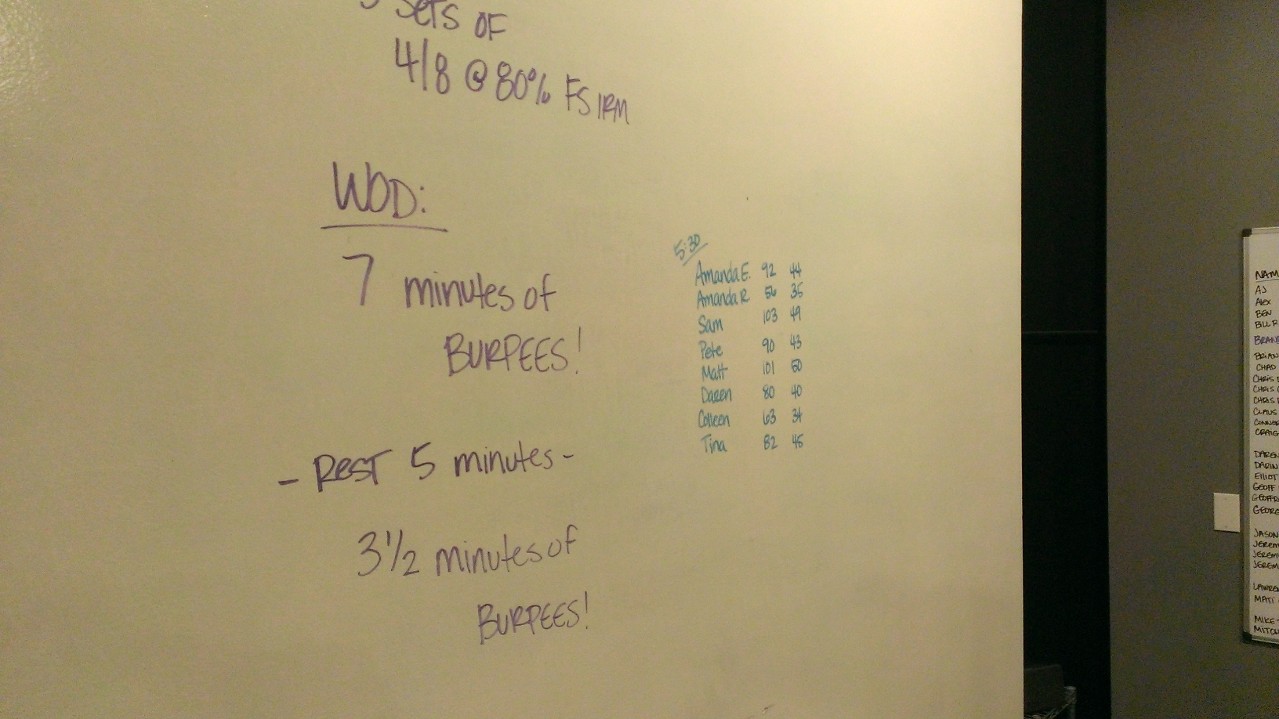 SETS OF
4/8 @ 80% FS 1RM
WOD:
7 minutes of
BURPEES!
- REST 5 minutes -
3 1/2 minutes of
BURPEES!
5:30
Amanda E. 92 44
Amanda R 56 35
Sam 103 49
Pete 90 43
Matt 101 50
Daren 80 40
Colleen 63 34
Tina 82 45
NAM
AJ
Alex
BEN
BILL R
BRIAN
CHAD
CHRIS
CHRIS
CHRIS
CLAUS
CONNER
CRAIG
DAREN
DARIN
ELLIOT
GEOFF
GEOFF
GEORG
JASON
JEREM
JEREM
JEREM
LAWRE
MATT
MIKE
MITCH